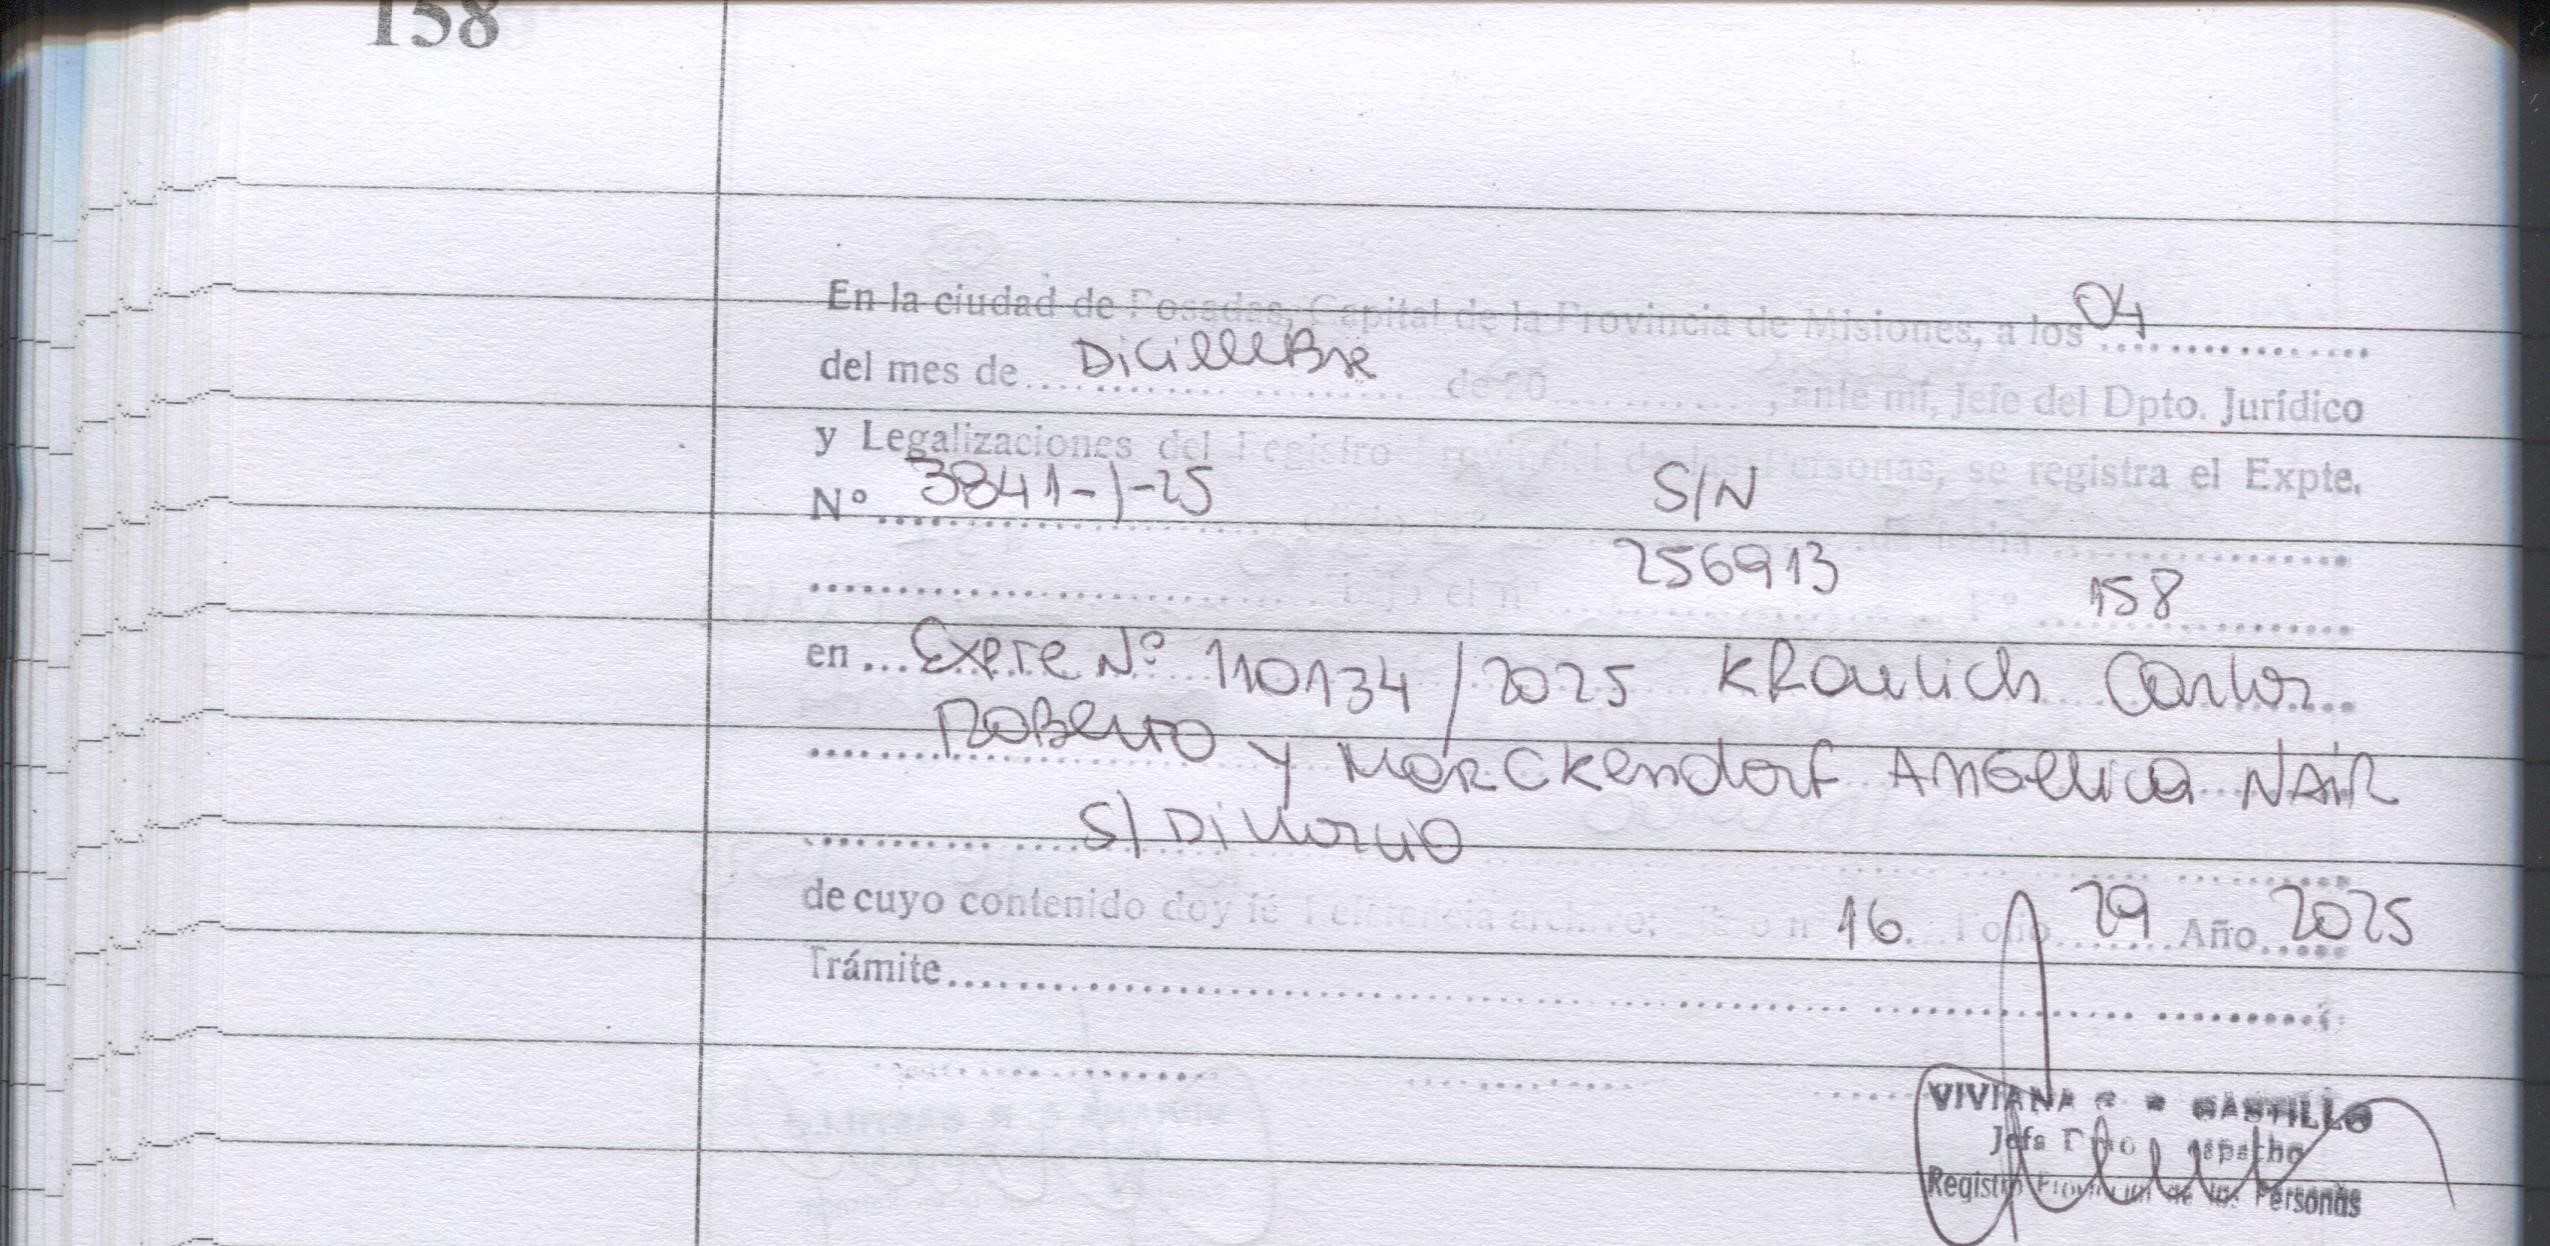 158
En la ciudad de Posadas, Capital de la Provincia de Misiones, a los 04
del mes de Diciembre de 20 , ante mí, Jefe del Dpto. Jurídico
y Legalizaciones del Registro Provincial de las Personas, se registra el Expte.
Nº 3841-1-25 oficio nº S/N de fecha
bajo el nº 256913 Fº 158
en Expte Nº 110134/2025 Kraulich Carlos
Roberto y Merckendorf Angelica Nair
S/ Divorcio
de cuyo contenido doy fé Referencia archivo: 16 Folio 29 Año 2025
Trámite
VIVIANA CASTILLO
Jefa Dpto Despacho
Registro Provincial de las Personas